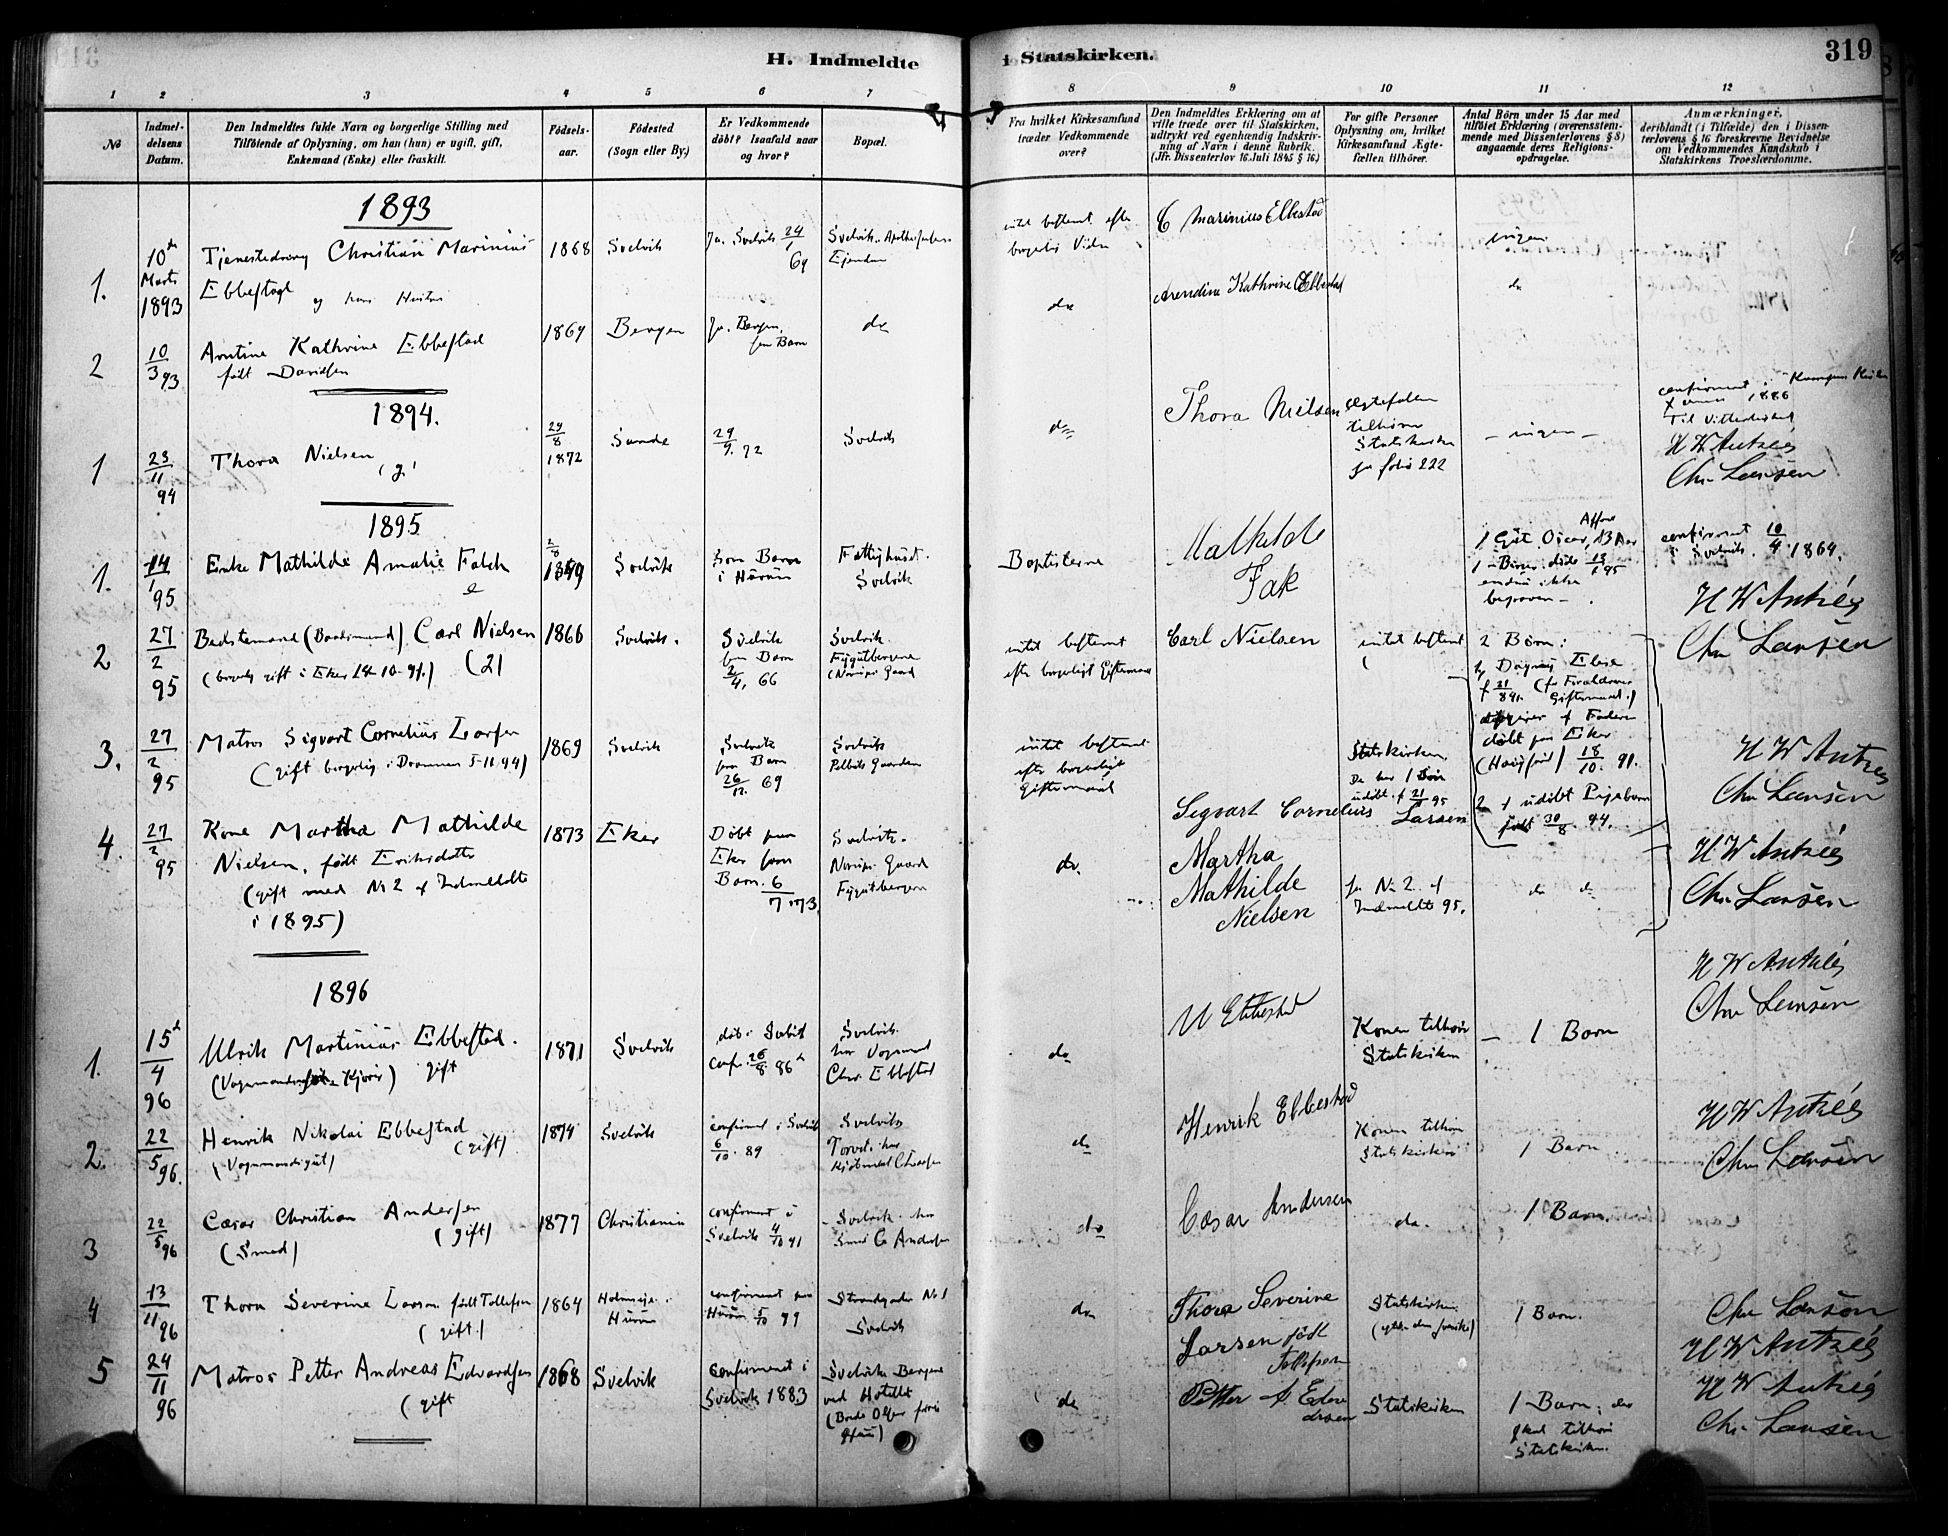 H. Indmeldte i Statskirken. 319
1 2 3 4 5 6 7 8 9 10 11 12
No
Indmel-
delsens
Datum.
Den Indmeldtes fulde Navn og borgerlige Stilling med
Tilföiende af Oplysning, om han (hun) er ugift, gift,
Enkemand (Enke) eller fraskilt.
Födsels-
aar.
Födested
(Sogn eller By.)
Er Vedkommende
döbt? Isaafald naar
og hvor?
Bopæl.
Fra hvilket Kirkesamfund
træder Vedkommende
over?
Den Indmeldtes Erklæring om at
ville træde over til Statskirken,
udtrykt ved egenhændig Indskriv-
ning af Navn i denne Rubrik.
(Jfr. Dissenterlov 16. Juli 1845 § 16)
For gifte Personer
Oplysning om, hvilket
Kirkesamfund Ægte-
fællen tilhörer.
Antal Börn under 15 Aar med
tilföiet Erklæring (overensstem-
mende med Dissenterlovens § 8)
angaaende deres Religions-
opdragelse.
Anmærkninger,
deriblandt (i Tilfælde) den i Dissen-
terlovens § 16 foreskrevne Bevidnelse
om Vedkommendes Kundskab i
Statskirkens Troeslærdomme.
1893
1. 10de Marts 1893
Tjenestedreng Christian Marinius
Ebbestad og hans Hustru
1868 Svelvik
Ja. Svelvik 24/1 69
Svelvik
intet bestemt efter
borgerlig
C Marinius Ebbestad
ingen
2 10/3 93
Arntine Kathrine Ebbestad
født Davidsen
1869 Bergen
Ja. Bergen,
som Barn
do
do
Arendine Kathrine Ebbestad
do
1894.
1 23/11 94
Thora Nielsen
(g)
29/8 1872
Sande
29/9. 72
Svelvik
do
Thora Nielsen
Ægtefællen
tilhører
Statskirken
folio 222
- ingen -
confirmeret i Kampen Kirke
1886
Til Vitterlighed
H W Antzée
Chr Larsen
1895
1. 14/1 95
Enke Mathilde Amalie Falck
e
2/8 1849
Svelvik
som Barn
i Hurum
Fattighuset.
Svelvik
Baptisterne
Mathilde
Fak
1 Gut. Oscar, 13 Aar
1 - døde 13/1 95
endnu ikke
begraven -
confirmeret 10/4 1864.
i Svelvik.
H W Antzée
Chr Larsen
2 27/2 95
Bedstemand (Baadsmand) Carl Nielsen
(borgerlig gift i Eker 14-10-91.) (2)
1866 Svelvik.
Svelvik
som Barn
2/4. 66
Svelvik
intet bestemt
efter borgerligt Giftermaal
Carl Nielsen
intet bestemt
2 Børn:
1, Dagny Elise
f 31/8 91. (før Forældrenes
Giftermaal.)
døbt paa Eker
18/10. 91.
2 1 udøbt Pigebarn
født 30/8. 94.
3. 27/2 95
Matros Sigvart Cornelius Larsen
(gift borgerlig i Drammen 5-11 94)
1869 Svelvik
Svelvik
som Barn
26/12. 69
Svelvik
intet bestemt
efter borgerligt
Giftermaal
Sigvart Cornelius Larsen
Statskirken
De har 1 Søn
udøbt. f 21/1 95
H W Antzée
Chr Larsen
4. 27/2 95
Kone Martha Mathilde
Nielsen, født Eriksdatter
(gift med No 2 af Indmeldte
i 1895)
1873 Eker
Døbt paa
Eker som
Barn. 6/7 73.
Svelvik.
do.
Martha
Mathilde
Nielsen
se No 2. af
Indmeldte 95.
do do
H W Antzée
Chr Larsen
1896
1. 15de/4 96
Ulrik Martinius Ebbestad.
gift
1871 Svelvik
Conf. 26/8 86
Svelvik
hos Vognmand
Chr. Ebbestad
do
U Ebbestad
Konen tilhører
Statskirken
1 Barn
H W Antzée
Chr Larsen
2. 22/5 96.
Henrik Nikolai Ebbestad
(Vognmandsgut) (gift)
1874 Svelvik
confirmeret i Svelvik
6/10. 89
Svelvik
Torvet. hos
Kjøbmand C Larsen
do
Henrik Ebbestad
Konen tilhører
Statskirken
1 Barn
H W Antzée
Chr Larsen
3 22/5 96
Cæsar Christian Andersen
(Smed) (gift)
1877 Christiania
confirmeret i
Svelvik 4/10 91
Svelvik hos
Smed C Andersen
do
Cæsar Andersen
do.
1 Barn.
4 13/11 96
Thora Severine Larsen født Tollefsen
(gift.)
1864
Hurum
confirmeret paa
Hurum 5/10 79
Strandgaden No 1
Svelvik
do
Thora Severine
Larsen født
Tollefsen
Statskirken
1 Barn.
Chr Larsen
H W Antzée
5 24/11 96
Matros Petter Andreas Edvardsen
(gift
1868 Svelvik
Confirmeret i
Svelvik 1883
Svelvik Bergene
ved Hotellet
do
Petter A Edvardsen
Statskirken
1 Barn, der
skal tilhøre
Statskirken.
H W Antzée
Chr. Larsen